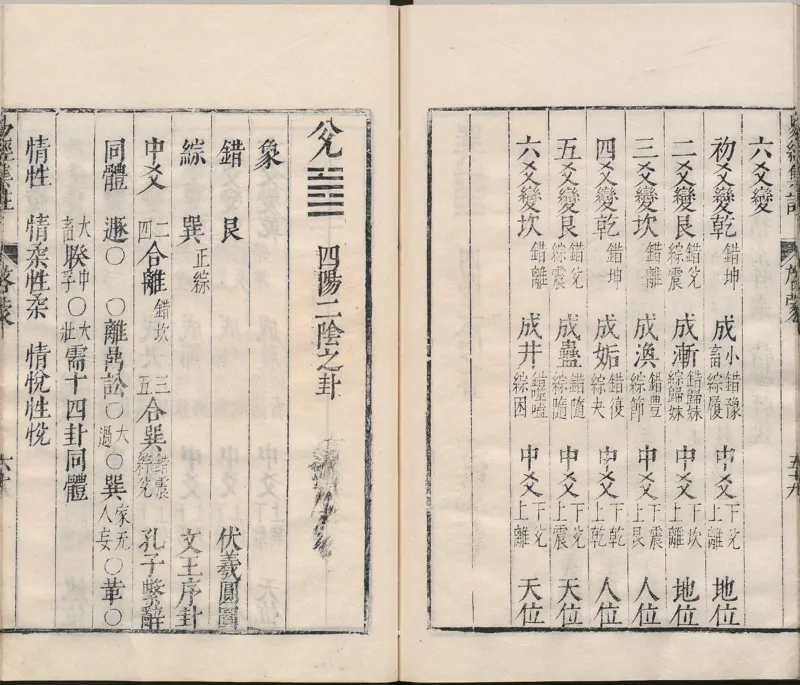 六爻變
初爻變乾 錯坤 成小畜 錯豫綜履 中爻 下兊上離 地位
二爻變艮 錯兊綜震 成漸 錯歸妹綜歸妹 中爻 下坎上離 地位
三爻變坎 錯離 成渙 錯豐綜節 中爻 下震上艮 人位
四爻變乾 錯坤 成姤 錯復綜夬 中爻 下乾上乾 人位
五爻變艮 錯兊綜震 成蠱 錯隨綜隨 中爻 下兊上震 天位
六爻變坎 錯離 成井 錯噬嗑綜困 中爻 下兊上離 天位
兊 四陽二陰之卦
象
錯 艮 伏羲圓圖
綜 巽 正綜 文王序卦
中爻 二四合離 錯坎 三五合巽 錯震綜兊 孔子繫辭
同體 遯〇 〇離鼎訟〇大過〇巽家人无妄〇革〇
大畜睽中孚〇大壯需十四卦同體
情性 情柔性柔 情悅性悅